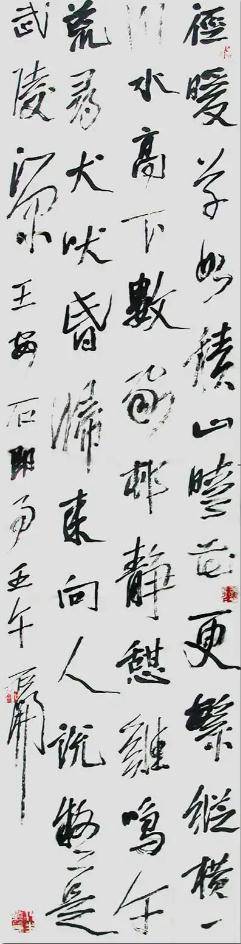 徑暖草如積山晴花更繁縱橫一
川水高下數家邨靜憩雞鳴午
荒尋犬吠昏歸來向人說疑是
武陵源王安石即事壬午